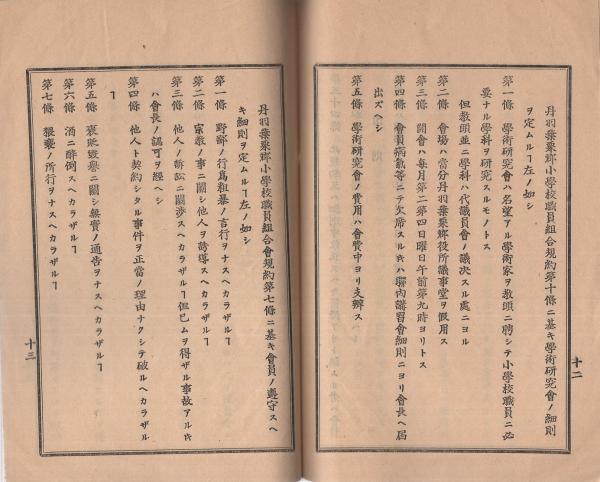 丹羽葉栗郡小學校職員組合會規約第十條ニ基キ學術研究會ノ細則
ヲ定ムルヿ左ノ如シ
第一條 學術研究會ハ名望アル學術家ヲ敎頭ニ聘シテ小學校職員ニ必
要ナル學科ヲ研究スルモノトス
但敎頭並ニ學科ハ代議員會ノ議決スル處ニヨル
第二條 會場ハ當分丹羽葉栗郡役所議事堂ヲ假用ス
第三條 開會ハ每月第二第四日曜日午前第九時ヨリトス
第四條 會員病氣等ニテ欠席スルキハ聯內講習會細則ニヨリ會長ヘ届
出ズヘシ
第五條 學術研究會ノ費用ハ會費中ヨリ支辨ス
十二
丹羽葉栗郡小學校職員組合會規約第七條ニ基キ會員ノ遵守スヘ
キ細則ヲ定ムルヿ左ノ如シ
第一條 野鄙ノ行爲粗暴ノ言行ヲナスヘカラザルヿ
第二條 宗敎ノ事ニ關シ他人ヲ誘導スヘカラザルヿ
第三條 他人ノ訴訟ニ關涉スヘカラザルヿ但已ムヲ得ザル事故アルキ
ハ會長ノ認可ヲ經ヘシ
第四條 他人ト契約シタル事件ヲ正當ノ理由ナクシテ破ルヘカラザル
ヿ
第五條 褒貶毀譽ニ關シ無實ノ通告ヲナスヘカラザルヿ
第六條 酒ニ醉倒スヘカラザルヿ
第七條 猥褻ノ所行ヲナスヘカラザルヿ
十三